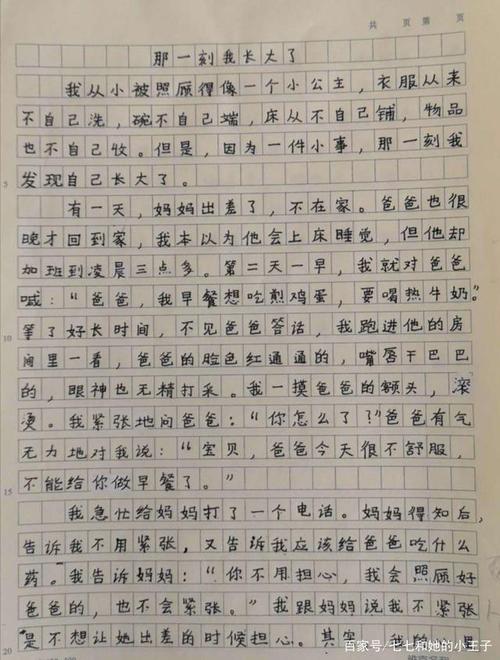 共 页 第 页
那一刻我长大了
我从小被照顾得像一个小公主，衣服从来
不自己洗，碗不自己端，床从不自己铺，物品
也不自己收。但是，因为一件小事，那一刻我
5 发现自己长大了。
有一天，妈妈出差了，不在家。爸爸也很
晚才回到家，我本以为他会上床睡觉，但他却
加班到凌晨三点多。第二天一早，我就对爸爸
喊：“爸爸，我早餐想吃煎鸡蛋，要喝热牛奶。”
10 等了好长时间，不见爸爸答话，我跑进他的房
间里一看，爸爸的脸色红通通的，嘴唇干巴巴
的，眼神也无精打采。我一摸爸爸的额头，滚
烫。我紧张地问爸爸：“你怎么了？”爸爸有气
无力地对我说：“宝贝，爸爸今天很不舒服，
15 不能给你做早餐了。”
我急忙给妈妈打了一个电话。妈妈得知后，
告诉我不用紧张，又告诉我应该给爸爸吃什么
药。我告诉妈妈：“你不用担心，我会照顾好
爸爸的，也不会紧张。”我跟妈妈说我不紧张
20 是不想让她出差的时候担心。其实，我的心里
百家号/七七和她的小王子